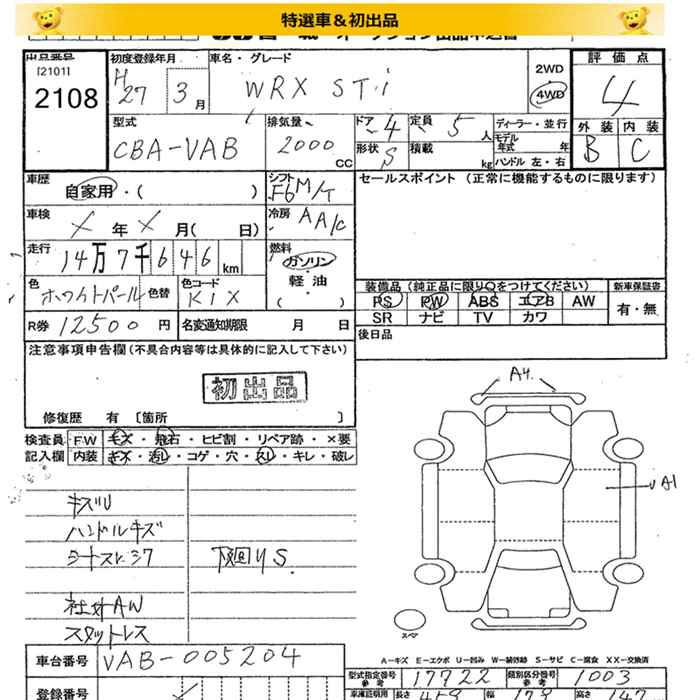 特選車＆初出品
出品番号
[2101]
2108
初度登録年月
H
27
3月
車名・グレード
WRX STi
2WD
4WD
評価点
4
外装 内装
B C
型式
CBA-VAB
排気量
2000
CC
ドア 4
形状 S
定員 5人
積載 kg
ディーラー・並行
モデル年式 年式
ハンドル 左・右
車歴
自家用・( )
シフト
F6 M/T
セールスポイント (正常に機能するものに限ります)
車検
年 月( 日)
冷房
AA/C
走行
14万7千646km
燃料
ガソリン
軽・油
( )
色
ホワイトパール
色替
色コード
K1X
装備品 (純正品に限り○をつけてください)
PS PW ABS エアB AW
SR ナビ TV カワ
新車保証書
有・無
R券 12500円
名変通知期限 月 日
後日品
注意事項申告欄(不具合内容等は具体的に記入して下さい)
初出品
修復歴 有 〔箇所 〕
検査員 FW キズ・飛石・ヒビ割・リペア跡・×要
記入欄 内装 キズ・汚レ・コゲ・穴・スリ・キレ・破レ
キズU
ハンドルキズ
下廻りS.
社外AW
スタッドレス
A4.
A1
スペア
車台番号
VAB-005204
A－キズ E－エクボ U－凹み W－補修跡 S－サビ C－腐食 XX－交換済
型式指定番号 参考
17722
類別区分番号 参考
1003
登録番号
車庫証明用 長さ 459 幅 179 高さ 147